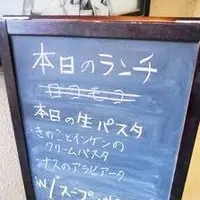 本日のランチ
ロコモコ
本日の生パスタ
きのことインゲンの
クリームパスタ
ナスのアラビアータ
w/スープ